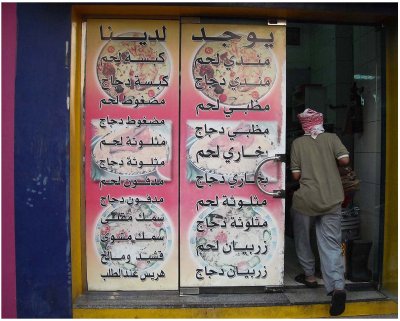 يوجد
مندي لحم
مندي دجاج
مظبي لحم
مظبي دجاج
بخاري لحم
بخاري دجاج
مثلوثة لحم
مثلوثة دجاج
زربيان لحم
زربيان دجاج
لدينا
كبسة لحم
كبسة دجاج
مضغوط لحم
مضغوط دجاج
مثلوثة لحم
مثلوثة دجاج
مدفون لحم
مدفون دجاج
سمك مقلي
سمك مشوي
قشد ومالح
هريس عند الطلب